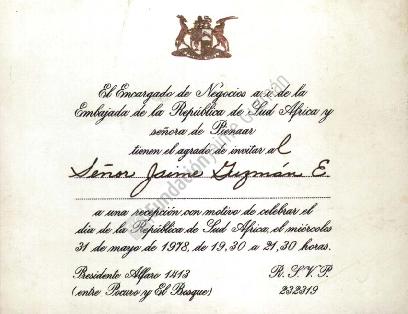 El Encargado de Negocios a.i de la
Embajada de la República de Sud Africa y
señora de Pienaar
tienen el agrado de invitar al
Señor Jaime Guzmán E.
a una recepción con motivo de celebrar el
día de la República de Sud Africa, el miércoles
31 de mayo de 1978, de 19,30 a 21,30 horas.
Presidente Alfaro 1413
(entre Pocuro y El Bosque)
R. S. V. P.
232319
Fundación Jaime Guzmán